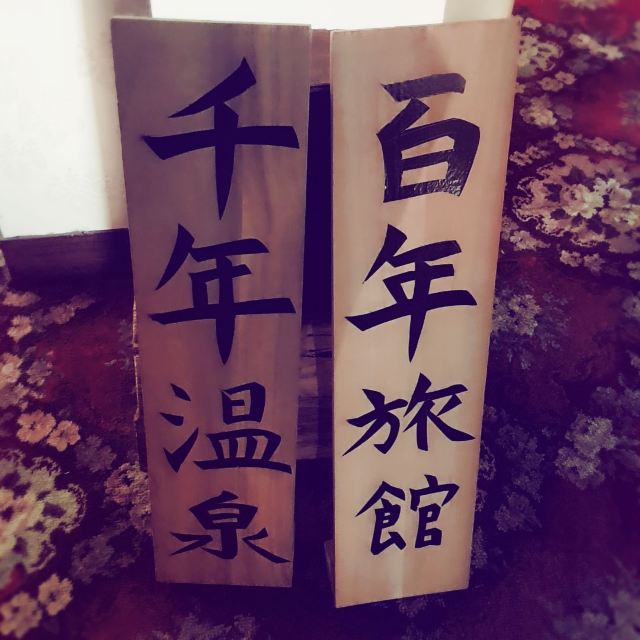 百年旅館
千年温泉